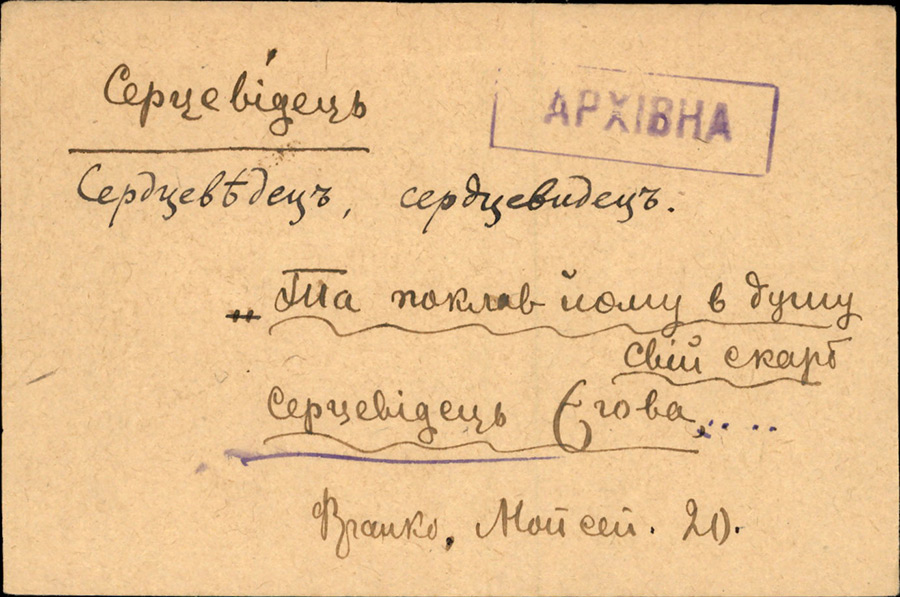 Серцеві́дець
АРХІВНА
Сердцевѣдецъ, сердцевидецъ.
„Та поклав йому в душу
свій скарб
серцевідець Єгова„...
Франко, Мойсей. 20.